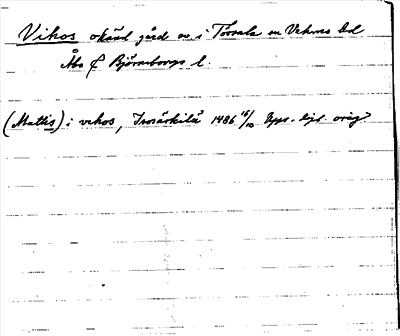 Vikos okänd gård ev i Töfsala sn Vehmo hd
Åbo & Björneborgs l.
(Matts) i vikos, Isosärkilä 1486 16/10 Upps. bjl. orig.